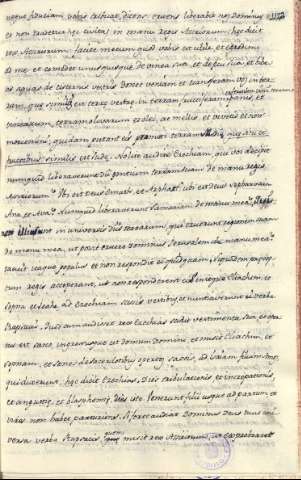 neque fiduciam vobis tribuat, dicens: eruens liberabit nos Dominus,
et non tradetur hęc civitas in manu regis Assiriorum. hęc dicit
rex Assiriorum: facite mecum quod vobis est utile, et egredimi
ad me, et comedet unusquisque de vinea sua, et de ficu sua: et bibetis
aquas de cisternis vestris donec veniam, et transferam vos in terram,
quę similis est terrę vestrę, in terram fructiferam,
terram olivarum et olei, ac mellis, et vivetis et non
moriemini,
Nolite audire Ezechiam, qui vos decipit
numquid liberaverunt Dii gentium terram suam de manu regis
Assiriorum? Ubi est Deus Emath, et Arphad? ubi est Deus Sepharvaim,
Ana, et Ava? Numquid liberaverunt Samariam de manu mea?
in universis diis terrarum, qui eruerunt regionem suam
de manu mea, ut possit eruere Dominus Jerusalem de manu mea?
tacuit itaque populus, et non respondit ei quidquam, siquidem pręceptum
regis acceperant, ut non responderent ei. Venitque Eliachim, et
Sobna, et Joahe ad Ezechiam scissis vestibus, et nuntiaverunt ei verba
Rapsacis. Quę cum audisset rex Ezechias scidit vestimenta sua, et opertus
est sacco, ingressusque est domum Domini, et misit Eliachim, et
Sobnam, et senes de sacerdotibus opertos saccis, ad Isaiam filium Amos,
qui dixerunt, hęc dicit Ezechias, Dies tribulationis, et increpationis,
et angustię, et blasphemię dies iste. Venerunt filii usque ad partum, et
vires non habet parturiens. Si forte audiat Dominus Deus tuus universa
verba Rapsacis, quem misit rex Assiriorum, ut exprobraret